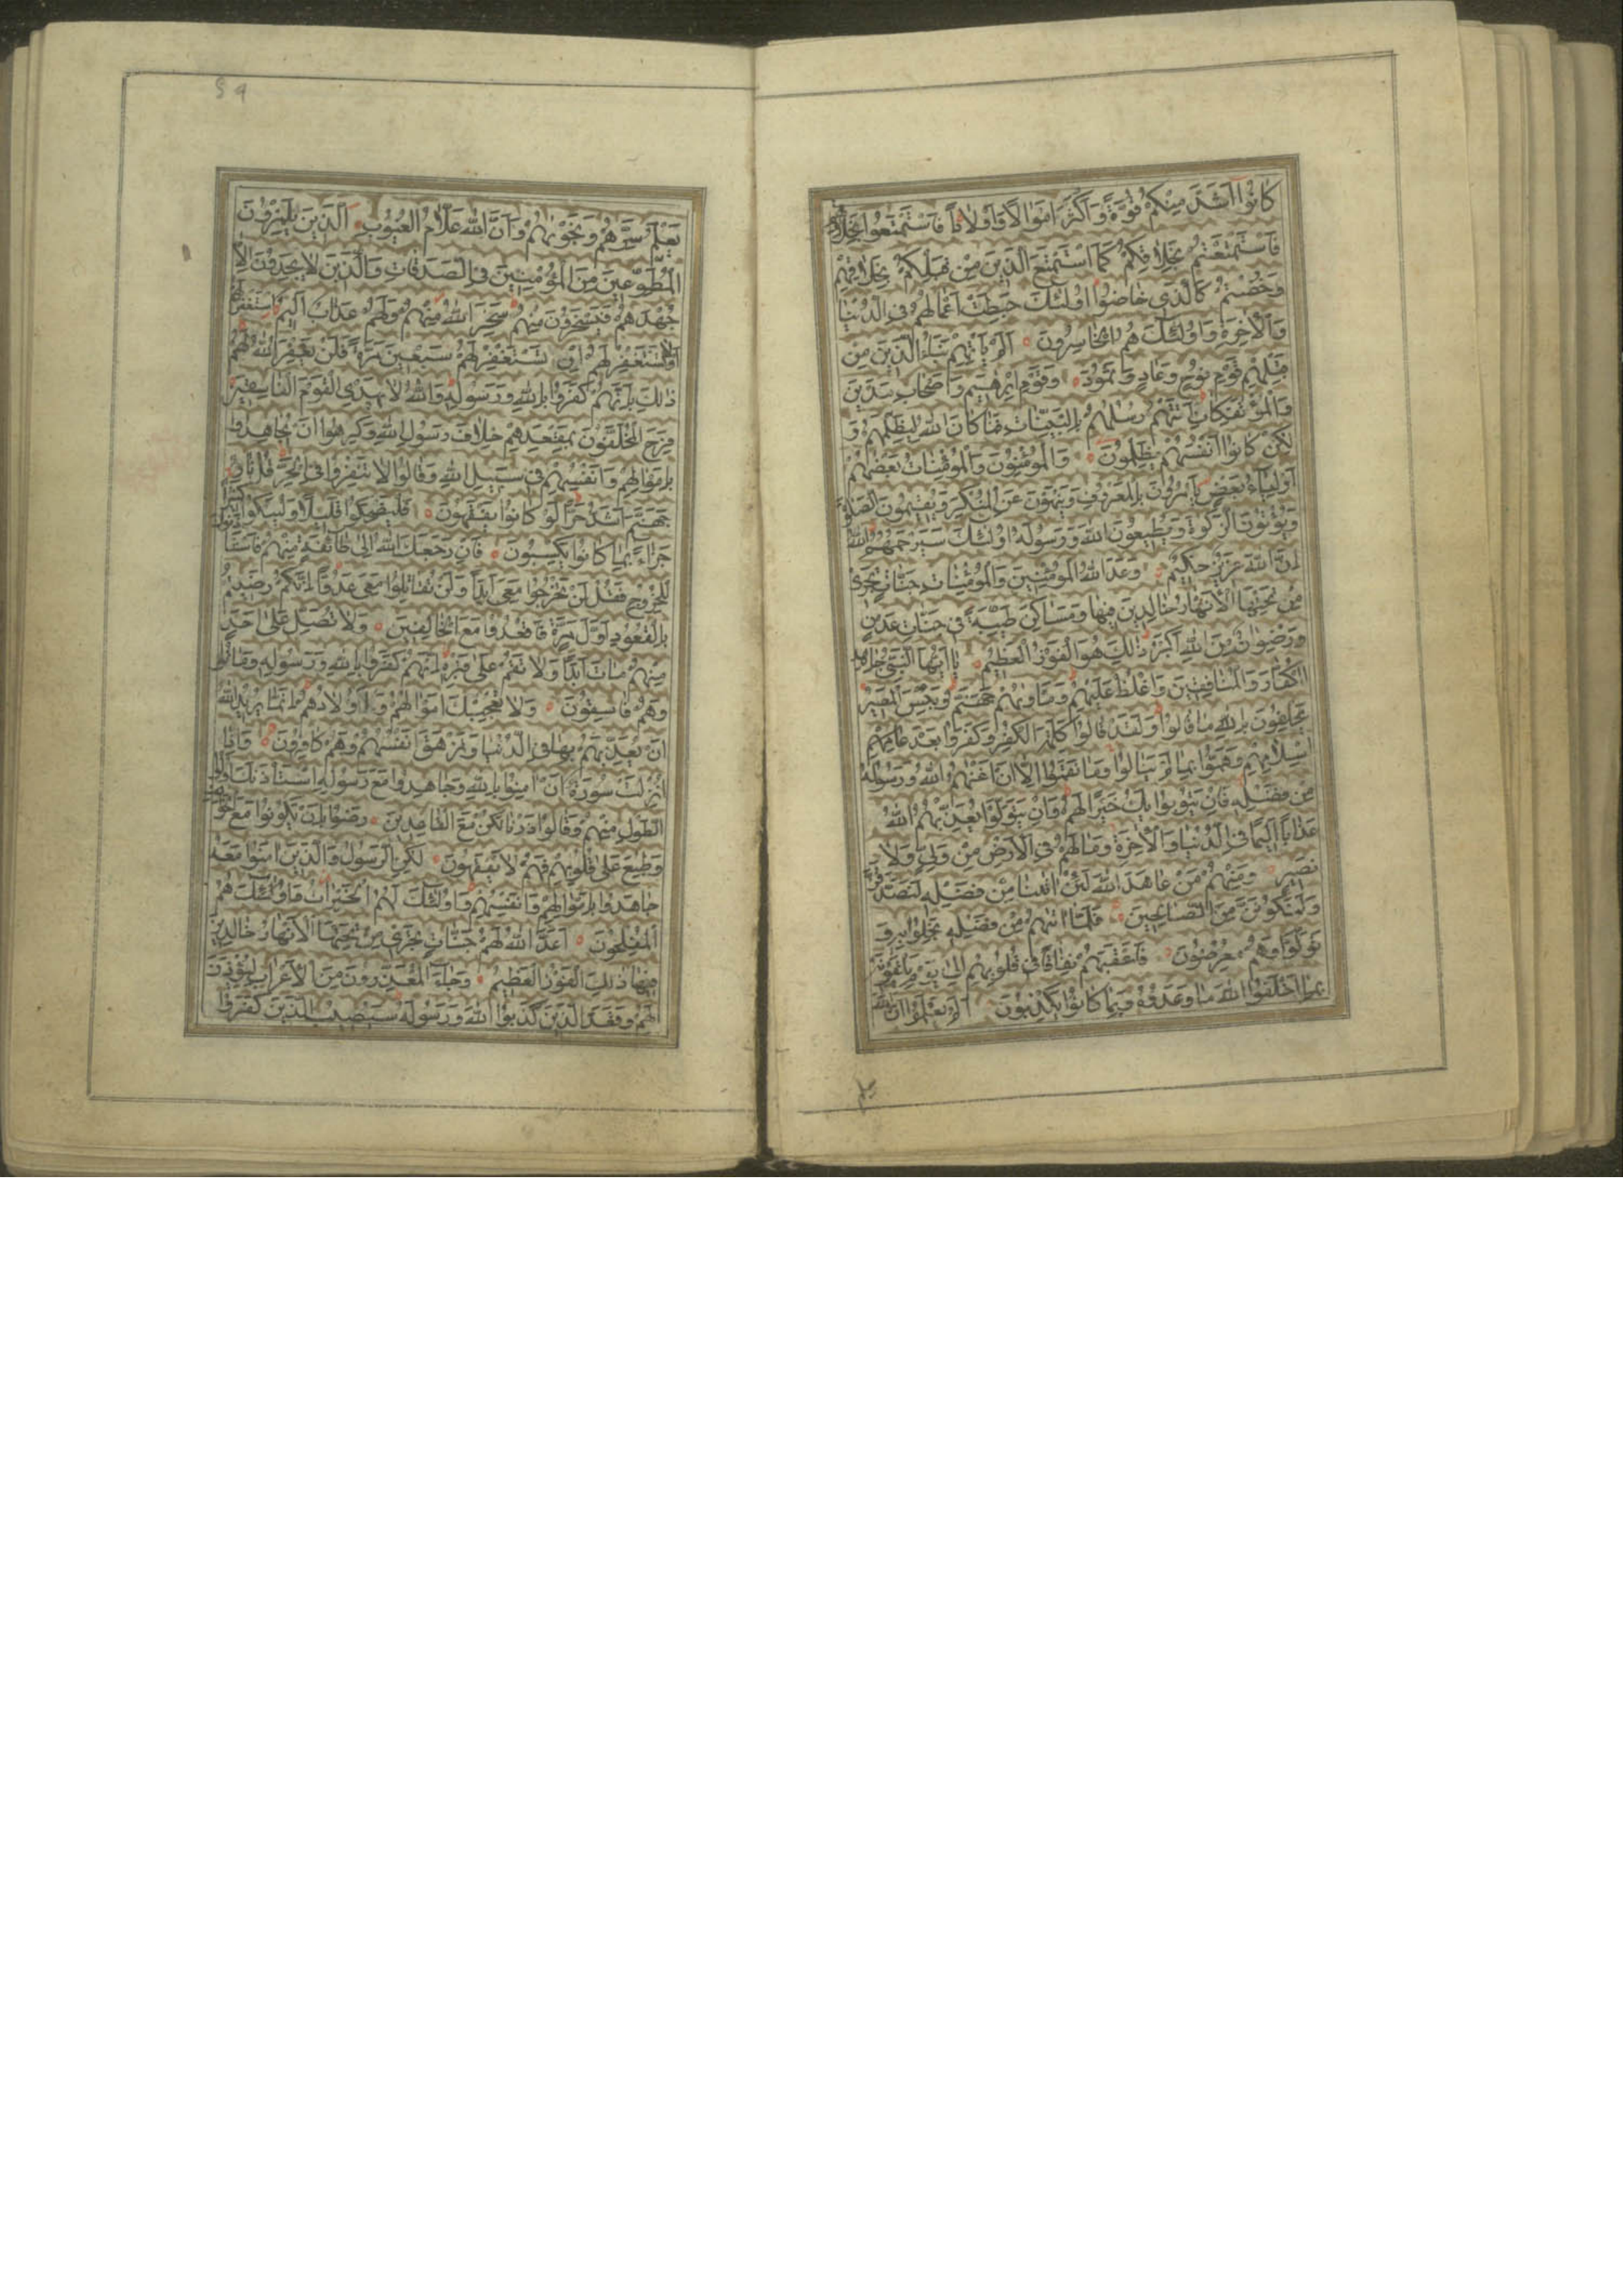 كانوا اشد منكم قوة واكثر اموالا واولادا فاستمتعوا بخلاقهم
فاستمتعتم بخلاقكم كما استمتع الذين من قبلكم بخلاقهم
وخضتم كالذي خاضوا اولئك حبطت اعمالهم في الدنيا
والاخرة واولئك هم الخاسرون الم ياتهم نبا الذين من
قبلهم قوم نوح وعاد وثمود وقوم ابرهيم واصحاب مدين
والمؤتفكات اتتهم رسلهم بالبينات فما كان الله ليظلمهم و
لكن كانوا انفسهم يظلمون والمؤمنون والمؤمنات بعضهم
اولياء بعض يامرون بالمعروف وينهون عن المنكر ويقيمون الصلوة
ويؤتون الزكوة ويطيعون الله ورسوله اولئك سيرحمهم الله
ان الله عزيز حكيم وعد الله المؤمنين والمؤمنات جنات تجري
من تحتها الانهار خالدين فيها ومساكن طيبة في جنات عدن
ورضوان من الله اكبر ذلك هو الفوز العظيم يا ايها النبي جاهد
الكفار والمنافقين واغلظ عليهم وماويهم جهنم وبئس المصير
يحلفون بالله ما قالوا ولقد قالوا كلمة الكفر وكفروا بعد
اسلامهم وهموا بما لم ينالوا وما نقموا الا ان اغنهم الله ورسوله
من فضله فان يتوبوا يك خيرا لهم وان يتولوا يعذبهم الله
عذابا اليما في الدنيا والاخرة وما لهم في الارض من ولي ولا
نصير ومنهم من عاهد الله لئن اتينا من فضله لنصدقن
ولنكونن من الصالحين فلما اتهم من فضله بخلوا به و
تولوا وهم معرضون فاعقبهم نفاقا في قلوبهم الى يوم يلقونه
بما اخلفوا الله ما وعدوه وبما كانوا يكذبون الم يعلموا ان الله
يعلم سرهم ونجويهم وان الله علام الغيوب الذين يلمزون
المطوعين من المؤمنين في الصدقات والذين لا يجدون الا
جهدهم فيسخرون منهم سخر الله منهم ولهم عذاب اليم استغفر لهم
او لا تستغفر لهم ان تستغفر لهم سبعين مرة فلن يغفر الله لهم
ذلك بانهم كفروا بالله ورسوله والله لا يهدي القوم الفاسقين
فرح المخلفون بمقعدهم خلاف رسول الله وكرهوا ان يجاهدوا
باموالهم وانفسهم في سبيل الله وقالوا لا تنفروا في الحر قل نار
جهنم اشد حرا لو كانوا يفقهون فليضحكوا قليلا وليبكوا كثيرا
جزاء بما كانوا يكسبون فان رجعك الله الى طائفة منهم فاستاذنوك
للخروج فقل لن تخرجوا معي ابدا ولن تقاتلوا معي عدوا انكم رضيتم
بالقعود اول مرة فاقعدوا مع الخالفين ولا تصل على احد
منهم مات ابدا ولا تقم على قبره انهم كفروا بالله ورسوله وماتوا
وهم فاسقون ولا تعجبك اموالهم واولادهم انما يريد الله
ان يعذبهم بها في الدنيا وتزهق انفسهم وهم كافرون واذا
انزلت سورة ان امنوا بالله وجاهدوا مع رسوله استاذنك اولوا
الطول منهم وقالوا ذرنا نكن مع القاعدين رضوا بان يكونوا مع الخوالف
وطبع على قلوبهم فهم لا يفقهون لكن الرسول والذين امنوا معه
جاهدوا باموالهم وانفسهم واولئك لهم الخيرات واولئك هم
المفلحون اعد الله لهم جنات تجري من تحتها الانهار خالدين
فيها ذلك الفوز العظيم وجاء المعذرون من الاعراب ليؤذن
لهم وقعد الذين كذبوا الله ورسوله سيصيب الذين كفروا